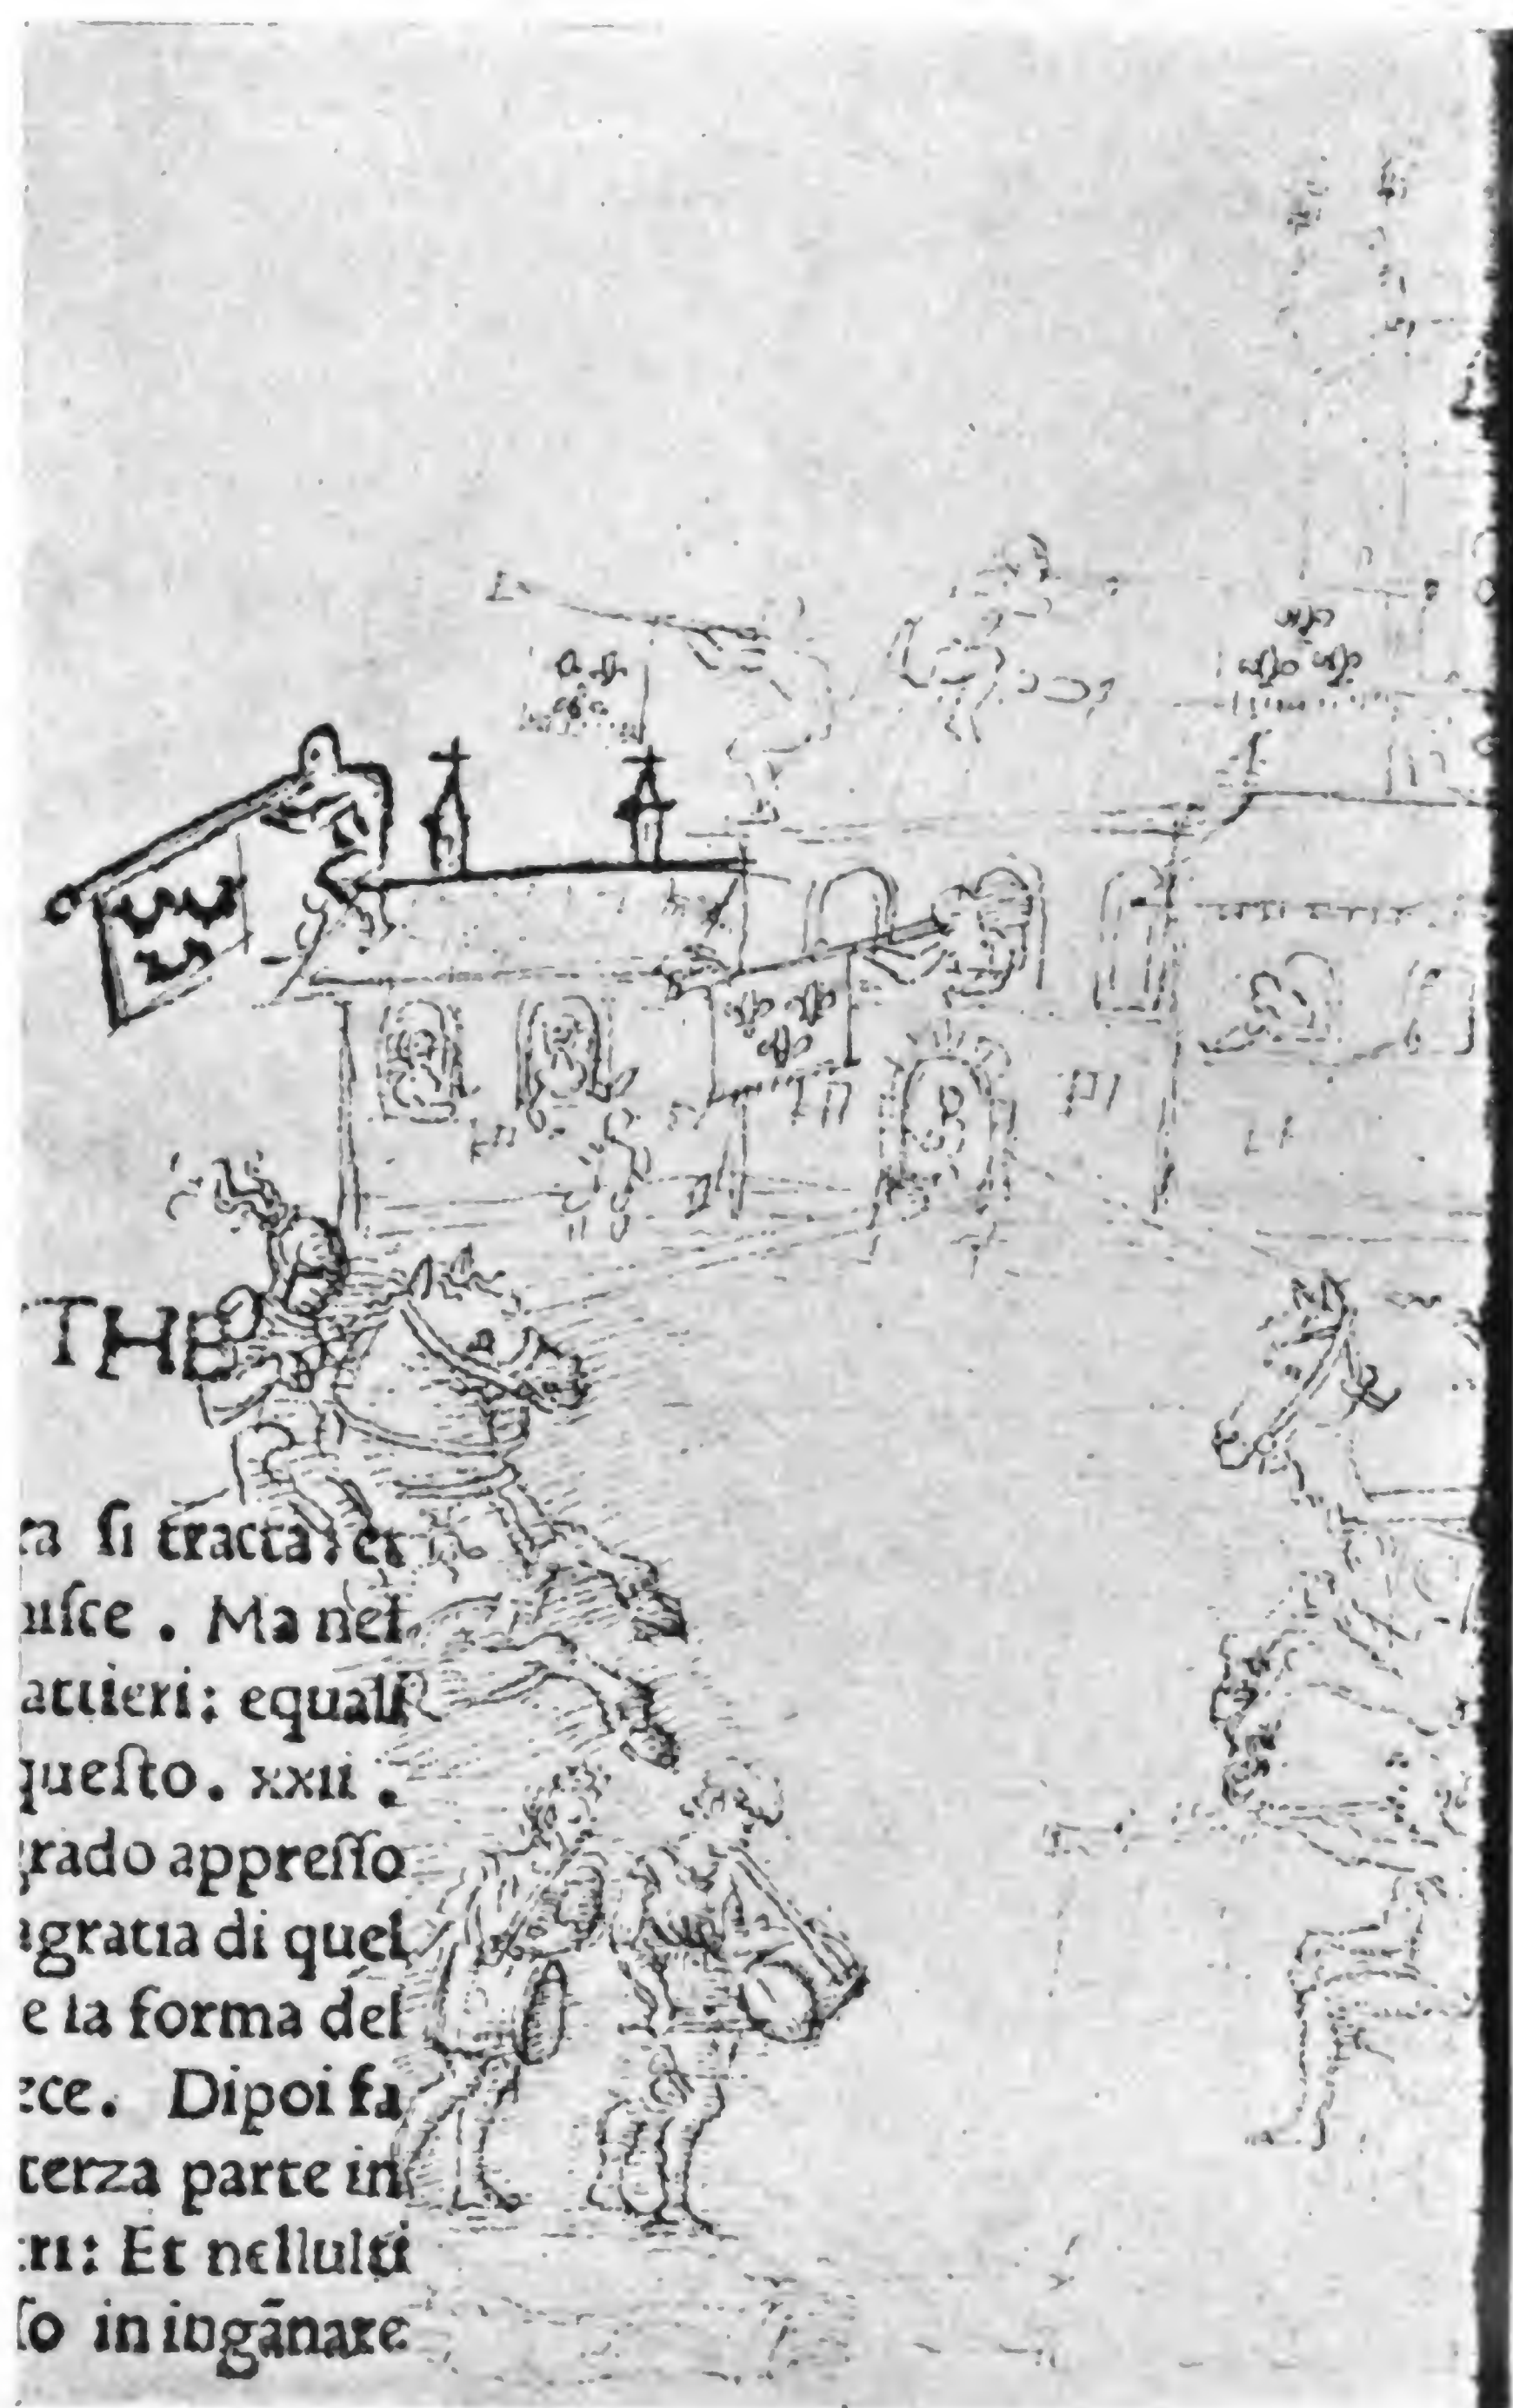 THE
ra ſi tracta: et
uſce . Ma nel
attieri: equali
queſto. xxii .
grado appreſſo
gratia di quel
e la forma del
ece. Dipoi fa
terza parte in
ri: Et nellulti
ſo in ingānare